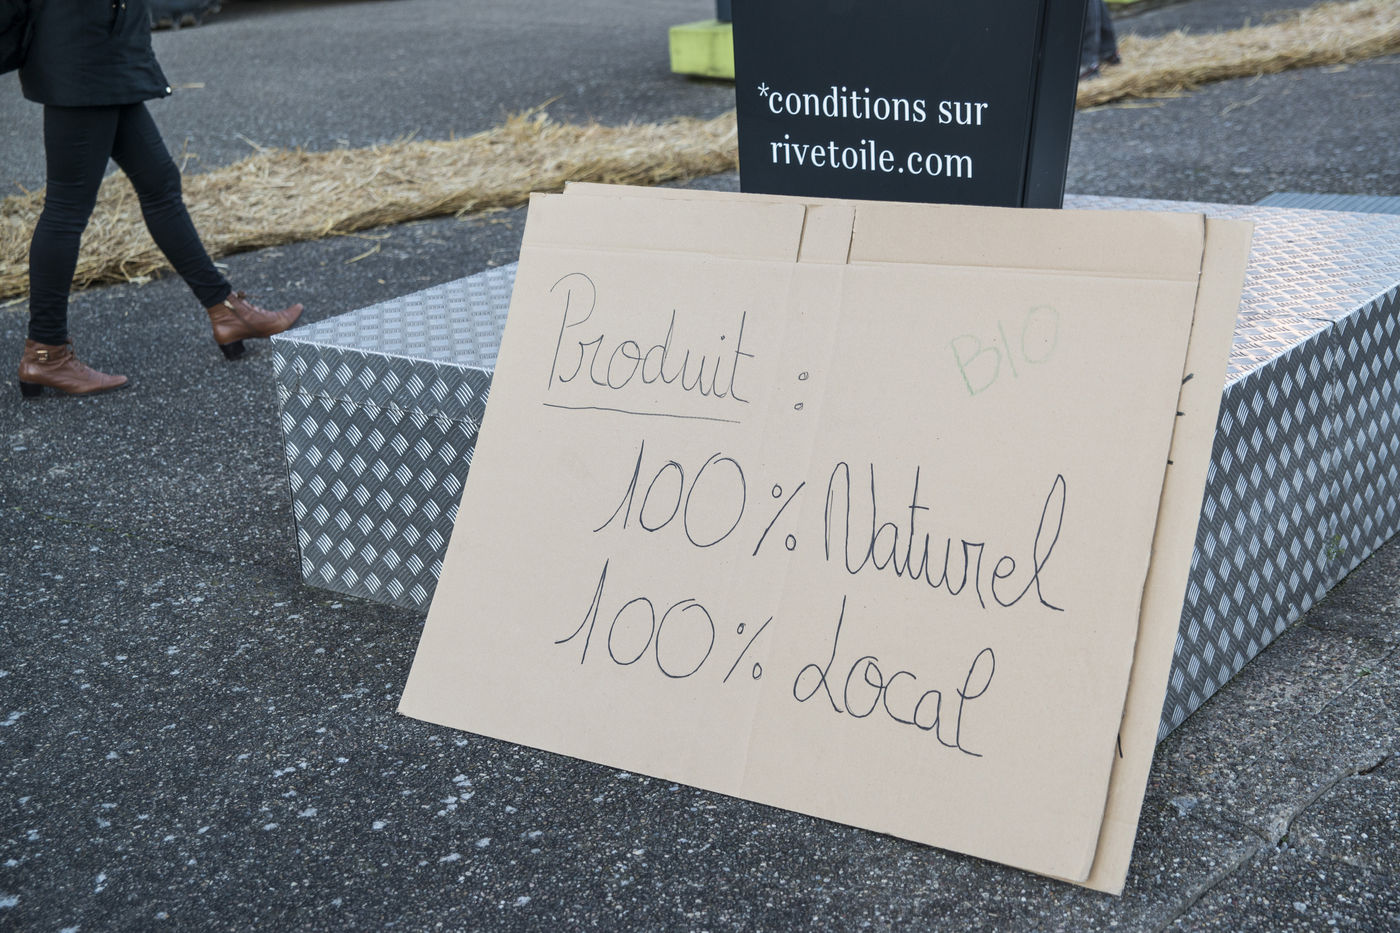 *conditions sur
rivetoile.com
Produit :
BIO
100% Naturel
100% Local